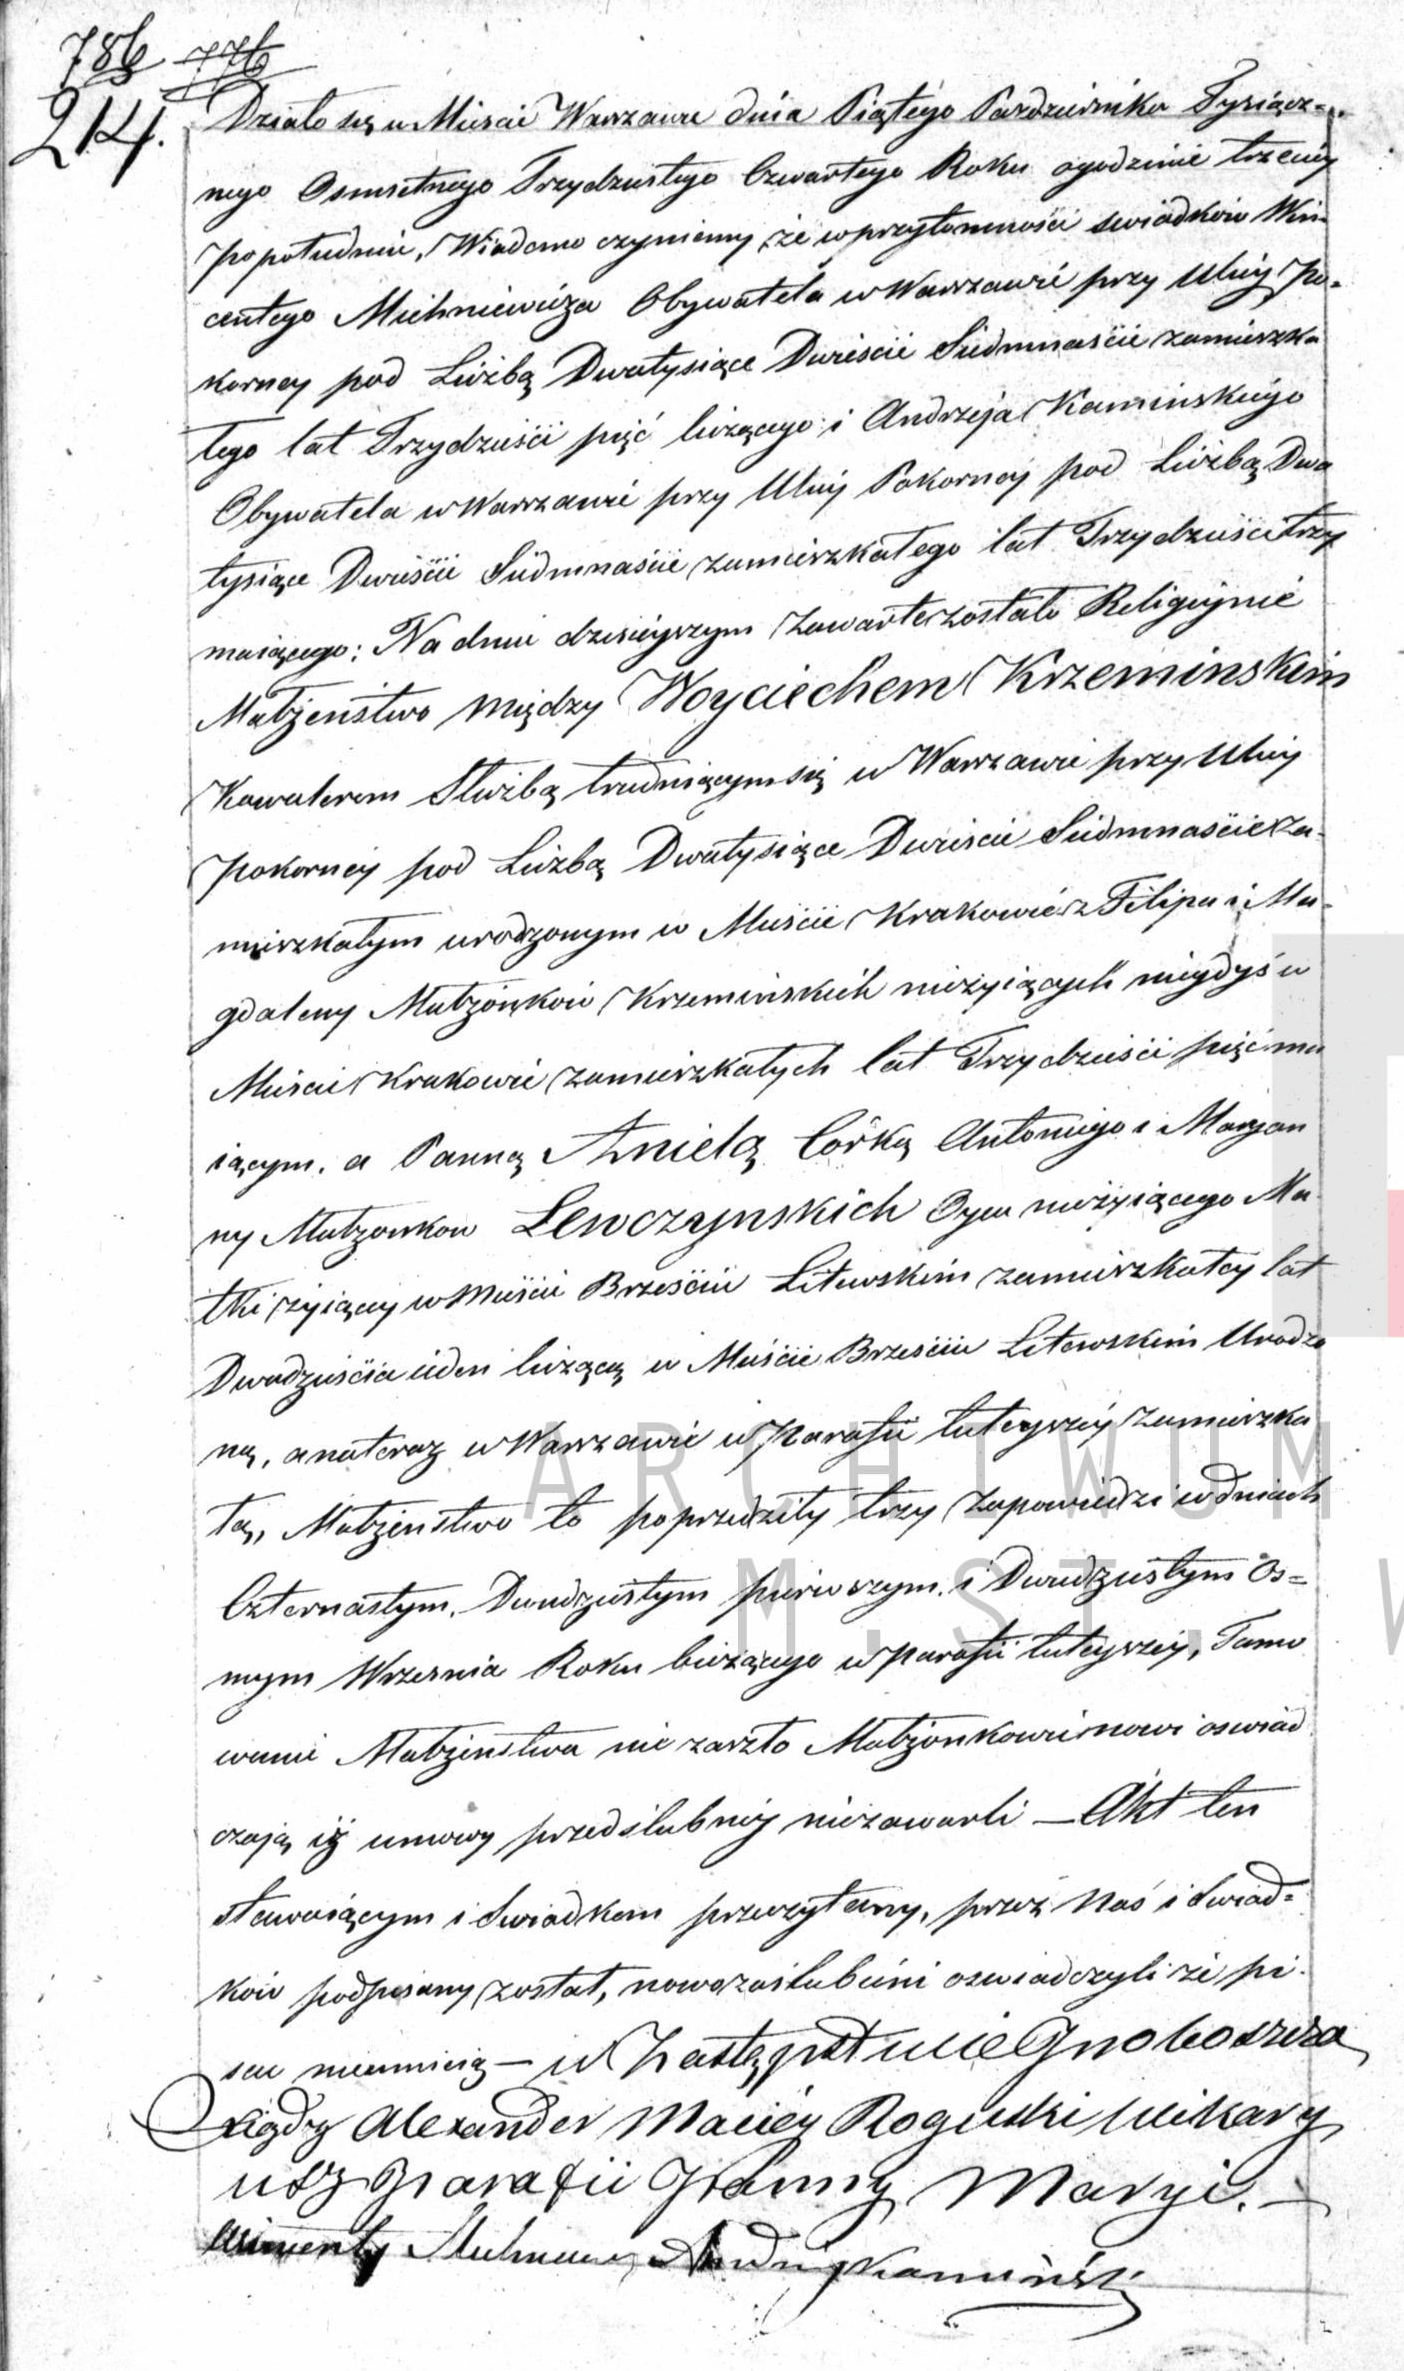 786 776
214.
Działo się w Mieście Warszawie dnia Piątego Pazdziernika Tysiącz=
nego Osmsetnego Trzydziestego Czwartego Roku o godzinie trzeciey
popołudniu, Wiadomo czyniemy, że w przytomności swiadków Win
centego Michniewicza Obywatela w Warszawie przy Ulicy Po-
korney pod Liczbą Dwatysiące Dwieście Siedmnaście zamieszka
łego lat Trzydzieści pięć liczącego i Andrzeja Kaminskiego
Obywatela w Warszawie przy Ulicy Pokorney pod Liczbą Dwa
tysiące Dwieście Siedmnaście zamieszkałego lat Trzydzieści trzy
maiącego; Na dniu dzisieyszym zawarte zostało Religijnie
Małżeństwo między Woyciechem Krzeminskim
Kawalerem Służbą trudniącym się w Warszawie przy Ulicy
Pokorney pod Liczbą Dwatysiące Dwieście Siedmnaście za-
mieszkałym urodzonym w Mieście Krakowie z Filipa i Ma-
gdaleny Małżonków Krzeminskich nieżyiących niegdyś w
Mieście Krakowie zamieszkałych lat Trzydzieści pięć ma
iącym. a Panną Anielą Córką Antoniego i Maryan
ny Małżonkow Lewczynskich Oyca nieżyiącego Ma
tki żyiącey w Mieście Brześciu Litewskim zamieszkałey lat
Dwadzieścia ieden liczącą w Mieście Brześciu Litewskim Urodzo
ną, a na teraz w Warszawie w Parafii tuteyszéy zamieszka
łą, Małżenstwo to poprzedziły trzy Zapowiedzi w dniach
Czternastym, Dwudziestym pierwszym i Dwudziestym Os=
mym Wrzesnia Roku bieżącego w Parafii tuteyszéy, Tamo
wanie Małżenstwa nie zaszło Małżonkowie nowi oswiad
czają iż umowy przedślubnéj niezawarli — Akt ten
stawaiącym i Swiadkom przeczytany, przez Nas i Swiad=
ków podpisany został, nowozaślubieni oswiadczyli że pi-
sac nieumieią — w Zastępstwie Proboszcza
Xiądz Alexander Maciéy Roguski Wikary
usz Parafii Panny Maryi. —
Michniewicz Andrzej Kaminski
ARCHIWUM
M. ST. W